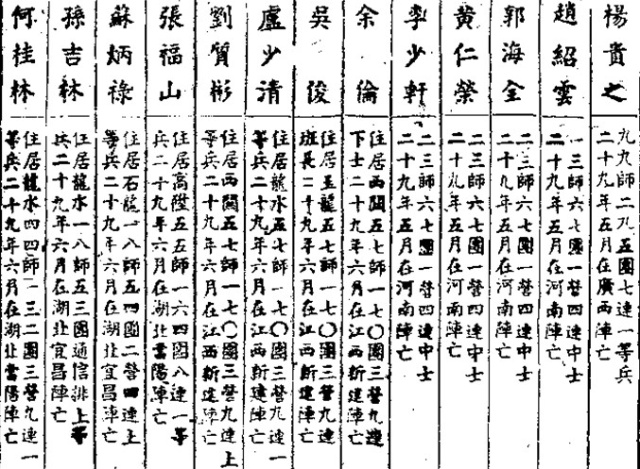 楊貴之
九九師二九五團七連一等兵
二十九年五月在廣西陣亡
趙紹雲
二三師六七團一營四連中士
二十九年五月在河南陣亡
郭海全
二三師六七團一營四連中士
二十九年五月在河南陣亡
黃仁榮
二三師六七團一營四連中士
二十九年五月在河南陣亡
李少軒
二三師六七團一營四連中士
二十九年五月在河南陣亡
余倫
住居西關五七師一七〇團三營九連
下士二十九年六月在江西新建陣亡
吳俊
住居玉龍五七師一七〇團三營九連
班長二十九年六月在江西新建陣亡
盧少清
住居龍水五七師一七〇團三營九連一
等兵二十九年五月在江西新建陣亡
劉質彬
住居西關五七師一七〇團三營九連上
等兵二十九年六月在江西新建陣亡
張福山
住居高陞五五師一六四團八連一等
兵二十九年六月在湖北當陽陣亡
蘇炳祿
住居石龍一八師五四團二營四連上
等兵二十九年六月在湖北宜昌陣亡
孫吉林
住居龍水一八師五三團通信排上等
兵二十九年六月在湖北宜昌陣亡
何桂林
住居龍水四四師一三二團三營九連一
等兵二十九年六月在湖北當陽陣亡